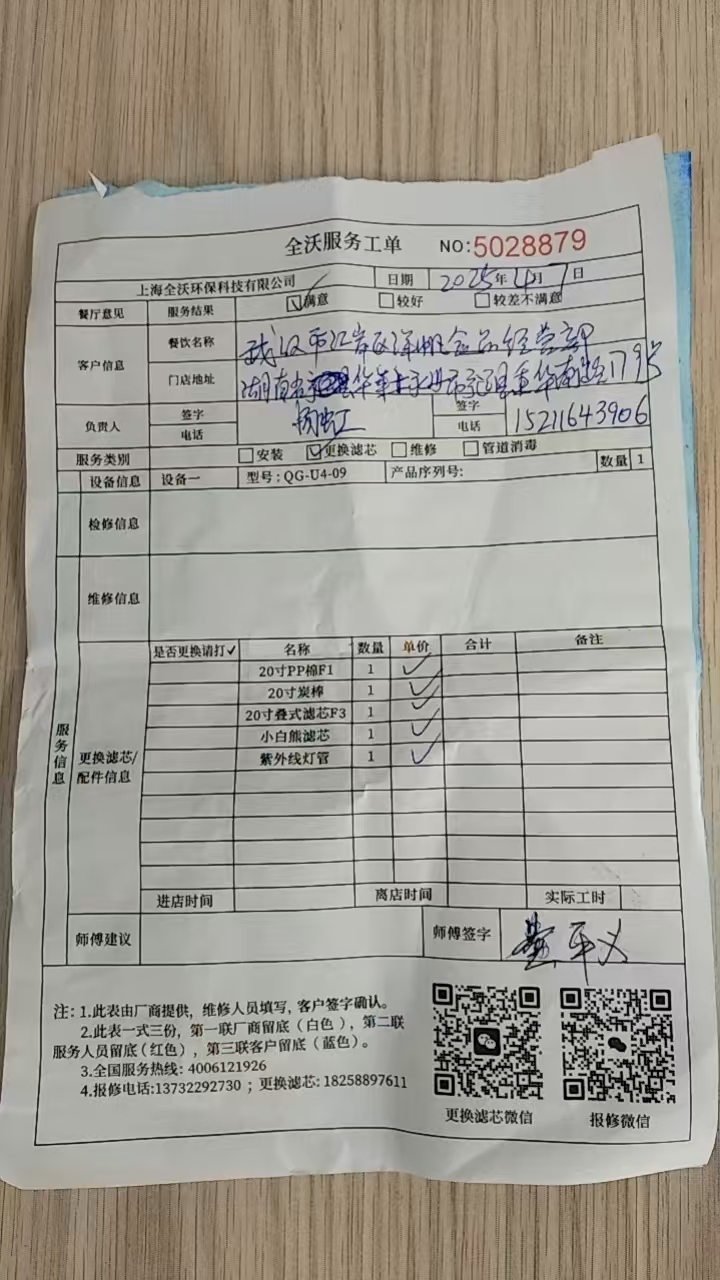 全沃服务工单 NO:5028879
上海全沃环保科技有限公司 日期 2025年4月7日
餐厅意见 服务结果 ☑满意 □较好 □较差不满意
客户信息 餐饮名称 武汉市江岸区洋帆食品经营部
门店地址 湖南省 华南路179号
负责人 签字 签字
电话 电话 15211643906
服务类别 □安装 ☑更换滤芯 □维修 □管道消毒
设备信息 设备一 型号:QG-U4-09 产品序列号: 数量 1
检修信息
维修信息
服务信息
更换滤芯/配件信息
是否更换请打✓ 名称 数量 单价 合计 备注
20寸PP棉F1 1 ✓
20寸炭棒 1 ✓
20寸叠式滤芯F3 1 ✓
小白熊滤芯 1 ✓
紫外线灯管 1 ✓
进店时间 离店时间 实际工时
师傅建议 师傅签字
注: 1.此表由厂商提供，维修人员填写, 客户签字确认。
2.此表一式三份，第一联厂商留底（白色），第二联
服务人员留底(红色），第三联客户留底（蓝色）。
3.全国服务热线: 4006121926
4.报修电话:13732292730 ；更换滤芯: 18258897611
更换滤芯微信 报修微信